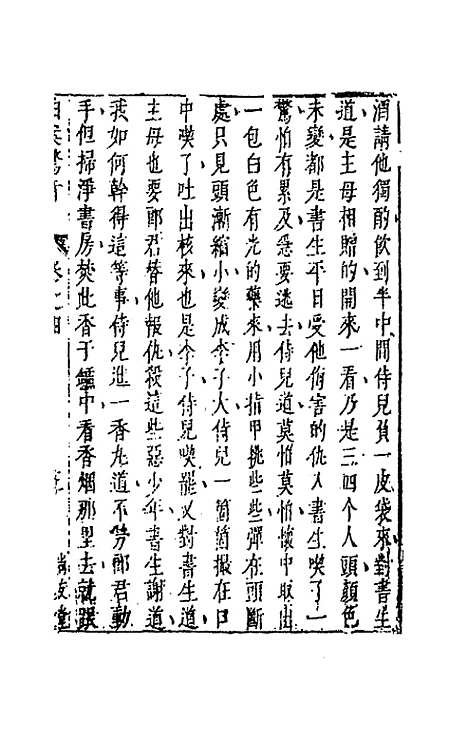 酒請他獨酌飲到半中間侍兒負一皮袋來對書生
道是主母相贈的開來一看乃是三四個人頭顏色
未變都是書生平日受他侮害的仇人書生喫了一
驚怕有累及急要逃去侍兒道莫怕莫怕懷中取出
一包白色有光的藥來用小指甲挑些些彈在頭斷
處只見頭漸縮小變成李子大侍兒一箇箇撮在口
中喫了吐出核來也是李子侍兒喫罷又對書生道
主母也要郎君替他報仇殺這些惡少年書生謝道
我如何幹得這等事侍兒進一香丸道不勞郎君動
手但掃淨書房焚此香于爐中看香烟那里去就跟
拍案驚奇 卷之四 尚友堂